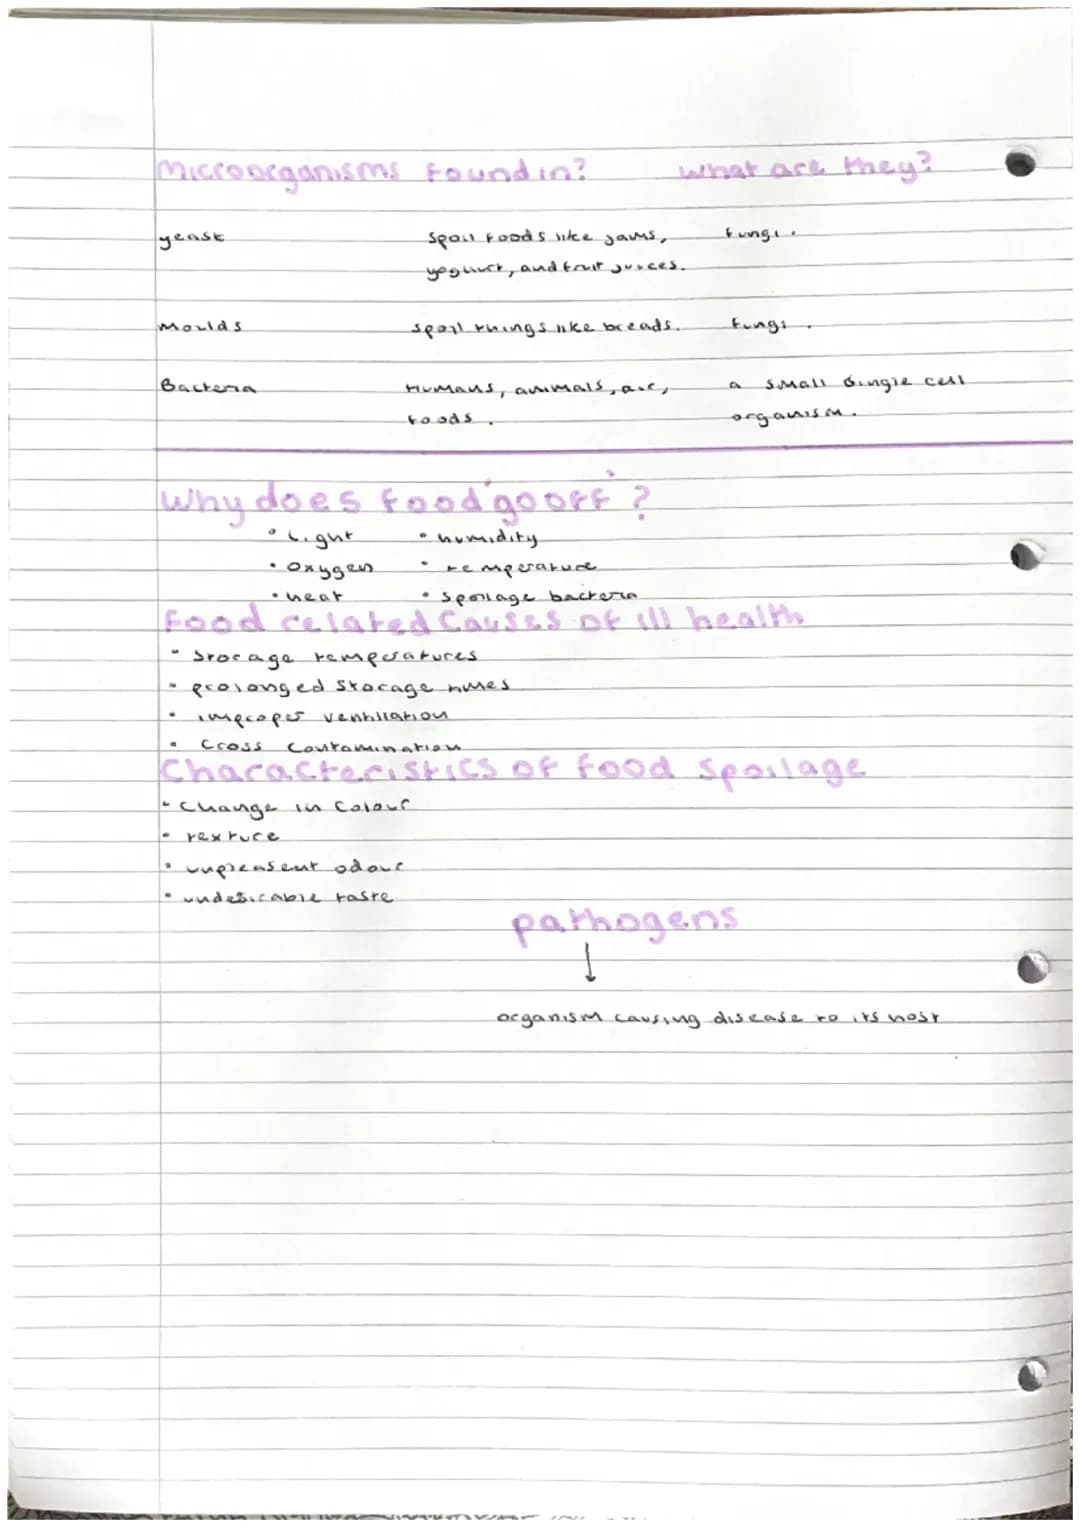 Microorganisms Found in? What are they?
yeast Spoil foods like jams, fungi.
yoghurt, and fruit juices.
Moulds spoil things like breads. Fungi.
Bacteria Humans, animals, air, a small single cell
foods. organism.
Why does food 'go off'?
• Light • humidity
• Oxygen • temperature
• heat • Spoilage bacteria
Food related Causes of ill health
• Storage temperatures
• prolonged Storage times
• improper ventilation
• Cross Contamination
Characteristics of food Spoilage
• Change in Colour
• texture
• unpleasent odour
• undesirable taste
pathogens
↓
organism causing disease to its host